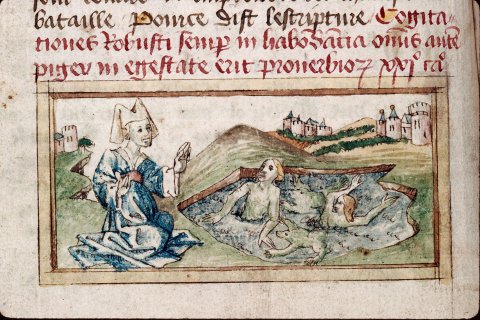 bataille Pource dist lescripture Cogita-
tiones Robusti semper in habondãcia omĩs autẽ
piger in egestate erit prouerbioꝝ xxjº caº